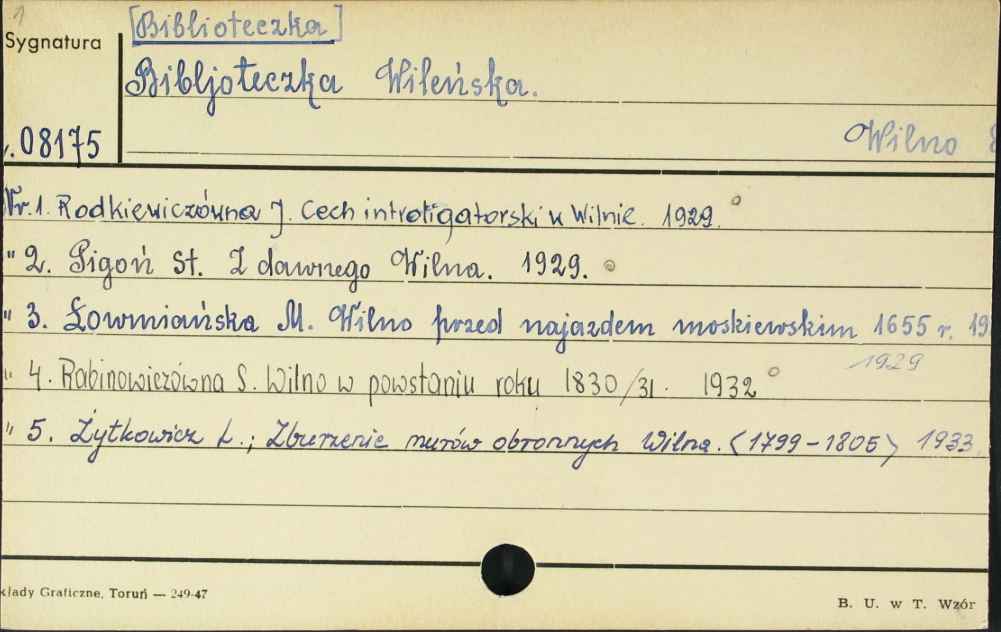 [Biblioteczka]
Sygnatura
Bibljoteczka Wileńska.
08175
Wilno
Nr. 1. Rodkiewiczówna J. Cech introligatorski w Wilnie. 1929.
" 2. Pigoń St. Z dawnego Wilna. 1929.
" 3. Łowmiańska M. Wilno przed najazdem moskiewskim 1655 r. 19
1929
" 4. Rabinowiczówna S. Wilno w powstaniu roku 1830/31. 1932
" 5. Żytkowicz L.; Zburzenie murów obronnych Wilna. (1799-1805) 1933.
kłady Graficzne, Toruń — 249-47
B. U. w T. Wzór